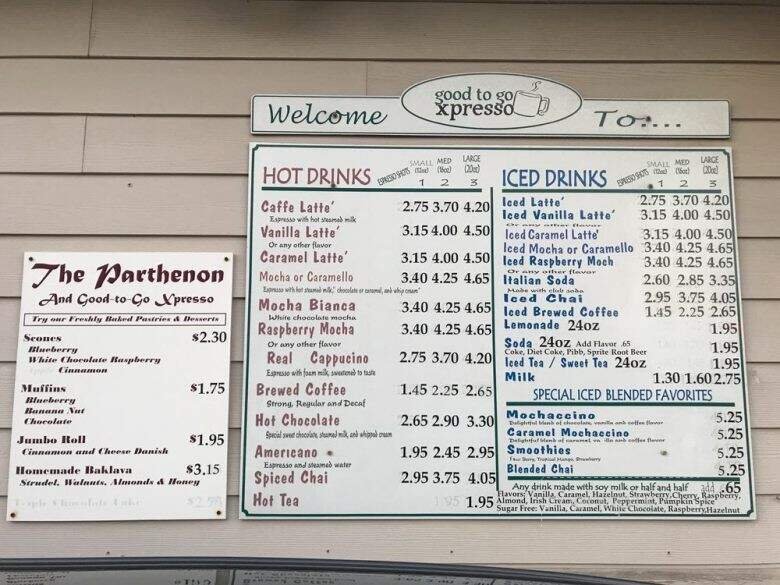 Welcome good to go xpresso To....
The Parthenon
And Good-to-Go Xpresso
Try our Freshly Baked Pastries & Desserts
Scones $2.30
Blueberry
White Chocolate Raspberry
Cinnamon
Muffins $1.75
Blueberry
Banana Nut
Chocolate
Jumbo Roll $1.95
Cinnamon and Cheese Danish
Homemade Baklava $3.15
Strudel, Walnuts, Almonds & Honey
HOT DRINKS
ESPRESSO SHOTS
SMALL MED LARGE
(12oz) (16oz) (20oz)
1 2 3
Caffe Latte' 2.75 3.70 4.20
Espresso with hot steamed milk
Vanilla Latte' 3.15 4.00 4.50
Or any other flavor
Caramel Latte' 3.15 4.00 4.50
Mocha or Caramello 3.40 4.25 4.65
Espresso with hot steamed milk, chocolate or caramel, and whip cream
Mocha Bianca 3.40 4.25 4.65
White chocolate mocha
Raspberry Mocha 3.40 4.25 4.65
Or any other flavor
Real Cappucino 2.75 3.70 4.20
Espresso with foam milk, sweetened to taste
Brewed Coffee 1.45 2.25 2.65
Strong, Regular and Decaf
Hot Chocolate 2.65 2.90 3.30
Special sweet chocolate, steamed milk, and whipped cream
Americano 1.95 2.45 2.95
Espresso and steamed water
Spiced Chai 2.95 3.75 4.05
Hot Tea 1.95
ICED DRINKS
ESPRESSO SHOTS
SMALL MED LARGE
(12oz) (16oz) (20oz)
1 2 3
Iced Latte' 2.75 3.70 4.20
Iced Vanilla Latte' 3.15 4.00 4.50
Or any other flavor
Iced Caramel Latte' 3.15 4.00 4.50
Iced Mocha or Caramello 3.40 4.25 4.65
Iced Raspberry Moch 3.40 4.25 4.65
Or any other flavor
Italian Soda 2.60 2.85 3.35
Made with club soda
Iced Chai 2.95 3.75 4.05
Iced Brewed Coffee 1.45 2.25 2.65
Lemonade 24oz 1.95
Soda 24oz Add Flavor .65 1.95
Coke, Diet Coke, Pibb, Sprite Root Beer
Iced Tea / Sweet Tea 24oz 1.95
Milk 1.30 1.60 2.75
SPECIAL ICED BLENDED FAVORITES
Mochaccino 5.25
Delightful blend of chocolate, vanilla and coffee flavor
Caramel Mochaccino 5.25
Delightful blend of caramel, vanilla and coffee flavor
Smoothies 5.25
Four Berry, Tropical Mango, Strawberry
Blended Chai 5.25
Any drink made with soy milk or half and half add .65
Flavors: Vanilla, Caramel, Hazelnut, Strawberry, Cherry, Raspberry,
Almond, Irish Cream, Coconut, Peppermint, Pumpkin Spice
Sugar Free: Vanilla, Caramel, White Chocolate, Raspberry, Hazelnut